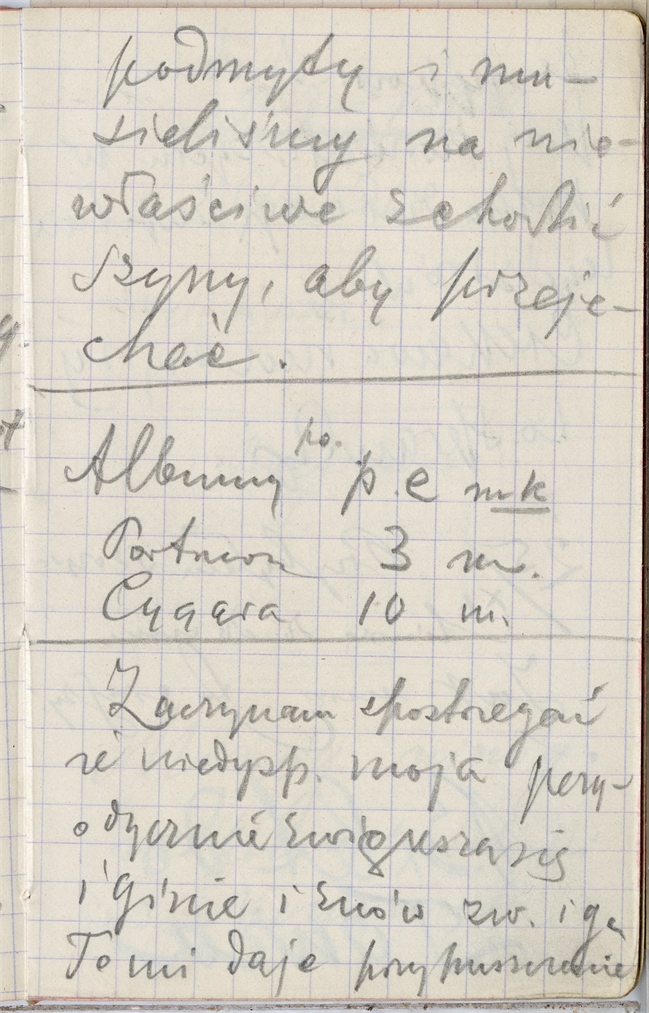 podmyty i mu-
sieliśmy na nie-
właściwe zchodzić
szyny, aby przeje-
chać.
po.
Albumy p. e mk
Portmon 3 m.
Cygara 10 m.
Zaczynam spostrzegać
że niedysp. moja pery-
odycznie zwiększa się
i ginie i znów zw. i gi
To mi daje przypuszczenie